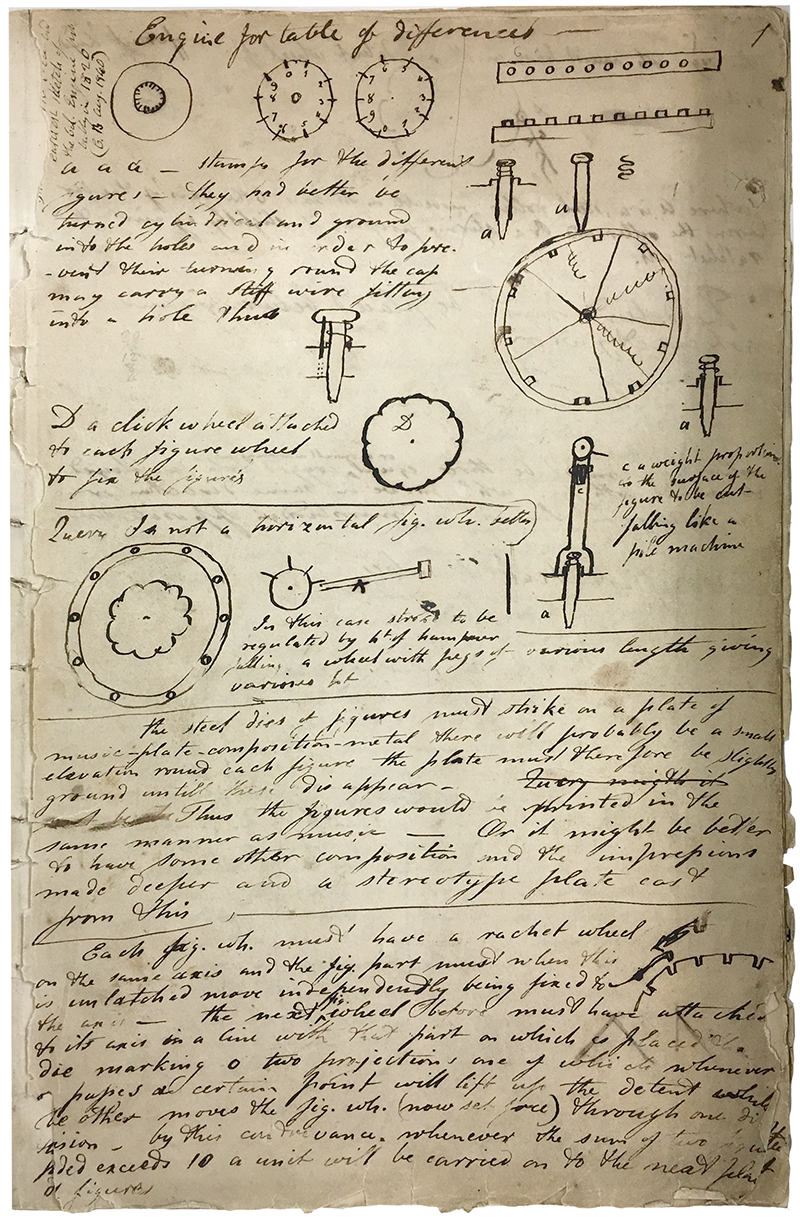 Engine for table of differences — 1
a a a — stamps for the different
figures — they had better be
turned cylindrical and ground
into the holes and in order to pre-
-vent their turning round the cap
may carry a stiff wire fitting
into a hole thus
0 1 2 3 4 5 6 7 8 9
a
a
a
D a click wheel attached
to each figure wheel
to fix the figures
D
c a weight proportion.
to the surface of the
figure to be cut
falling like a
pile machine
c
a
Query Is not a horizontal fig. wh. better
In this case stroke to be
regulated by ht of hammer
falling a wheel with pegs of various length giving
various ht
the steel dies of figures must strike on a plate of
music-plate-composition-metal there will probably be a small
elevation round each figure the plate must therefore be slightly
ground untill these disappear — Query might it
Thus the figures would be printed in the
same manner as music — Or it might be better
to have some other composition and the impressions
made deeper and a stereotype plate cast
from this
Each fig. wh. must have a rachet wheel
on the same axis and the fig. part must when this
is unlatched move independently being fixed to
the axis — the next fig. wheel before must have attached
to its axis in a line with that part on which is placed the
die marking 0 two projections one of which whenever
o passes a certain point will lift up the detent while
the other moves the fig. wh. (now set free) through one di
vision — by this contrivance whenever the sum of two figures
added exceeds 10 a unit will be carried on to the next place
of figures